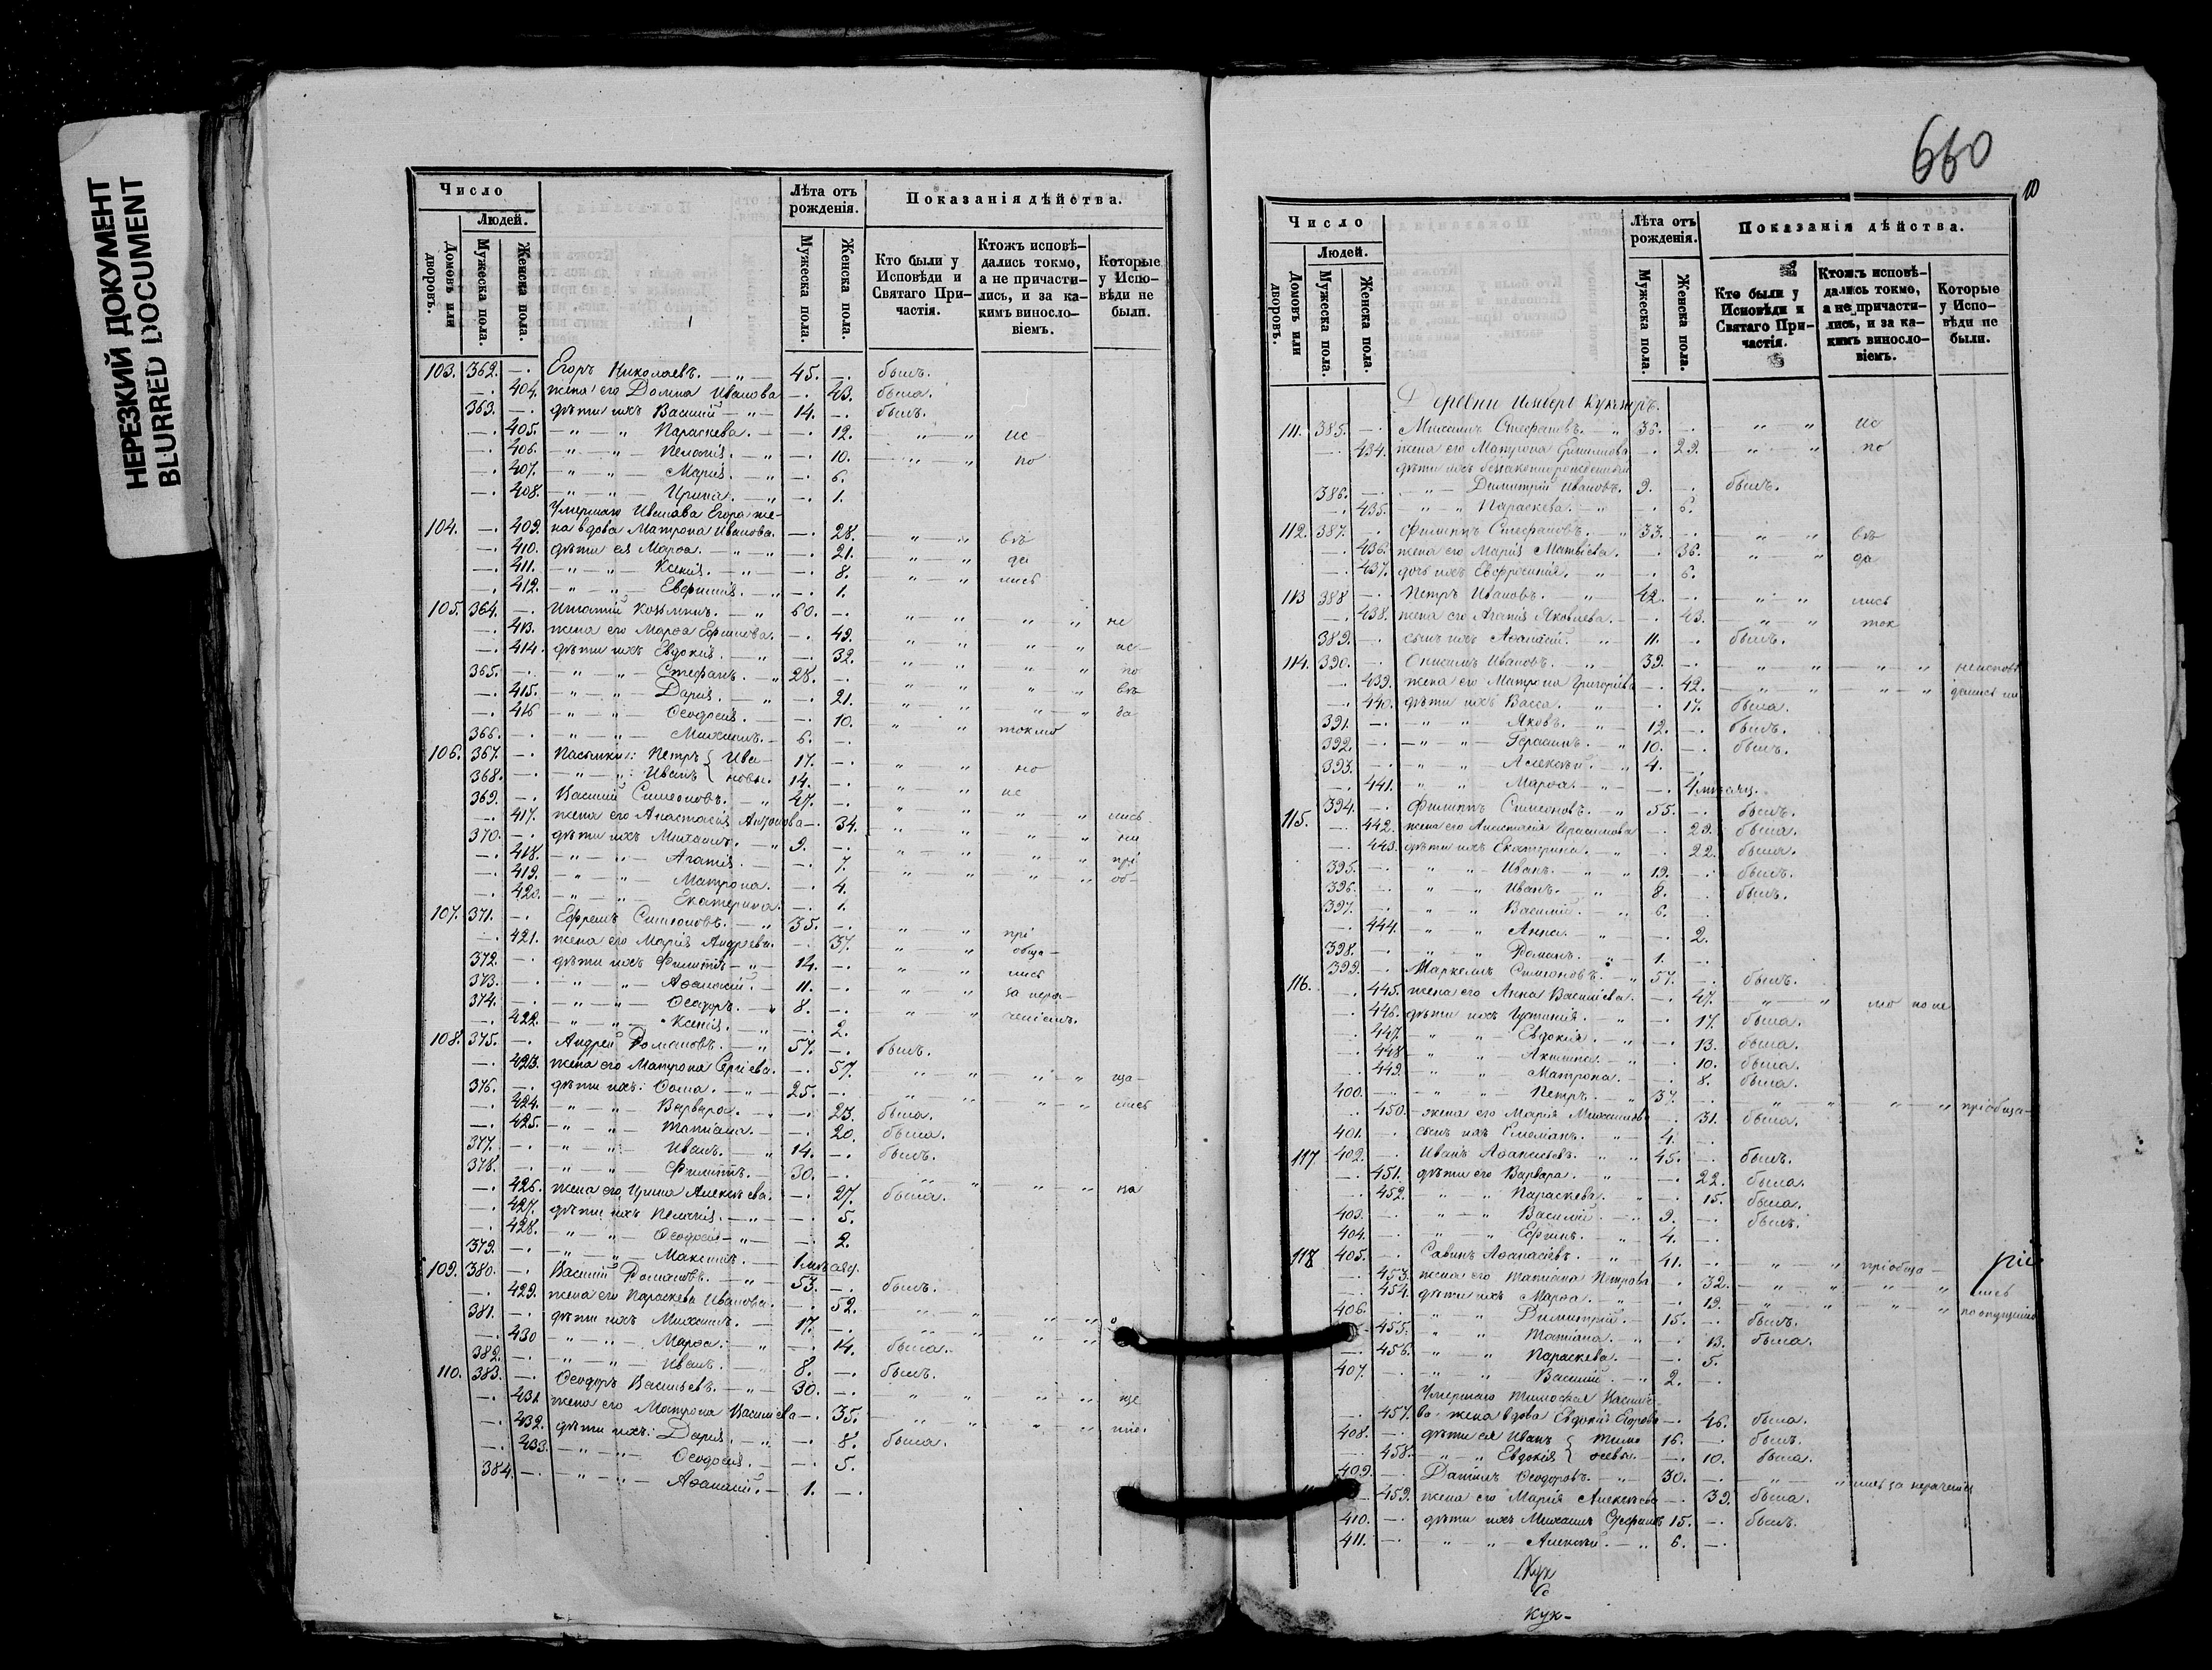 НЕРЕЗКИЙ ДОКУМЕНТ
BLURRED DOCUMENT
Число
Людей.
Домовъ или дворовъ.
Мужеска пола.
Женска пола.
Лѣта отъ рожденія.
Мужеска пола.
Женска пола.
Показанія дѣйства.
Кто были у Исповѣди и Святаго Причастія.
Ктожъ исповѣдались токмо, а не причастились, и за какимъ винословіемъ.
Которые у Исповѣди не были.
103. 362. —. Егоръ Николаевъ. — „ — 45. —. былъ.
—. 404. жена его Домна Иванова —. 43. была.
363. —. дѣти ихъ Василий — „ — 14. —. былъ.
—. 405. — „ — „ Параскева. — —. 12. „ — „ ис
—. 406. — „ — „ — Пелагія. — „ —. 10. — „ — „ по
—. 407. — „ — „ Марія. — „ —. 6.
—. 408. — „ — „ — Ирина. — „ —. 1.
Умершаго Иванова Егора же-
104. —. 409. на вдова Матрона Иванова. —. 28. „ — „ вѣ
—. 410. дѣти ея Марѳа. — „ — „ —. 21. „ „ да
—. 411. — „ — „ — Ксенія. — „ —. 8. „ — „ лись
—. 412. — „ — „ — Евфимія. — „ —. 1.
105. 364. —. Игнатій Козьминъ. — „ 60. —.
—. 413. жена его Марѳа Ефимова. —. 49. „ — „ „ „ не
—. 414. дѣти ихъ Евдокія. — „ —. 32. „ „ „ — „ ис—
365. —. — „ — „ — Стефанъ. — „ 28. —. „ „ „ „ по
—. 415. — „ — „ — Дарія. — „ —. 21. „ „ „ „ вѣ
—. 416 — „ — „ Ѳеодосія. — —. 10. „ „ „ „ да
366. —. — „ — „ — Михаилъ. — 6. —. „ „ токмо
106. 367. —. Пасынки: Петръ { Ива— 17. —.
368. —. — „ — „: Иванъ { новы. 14. —. „ „ но
369. —. Василий Симеоновъ. — „ 47. —. „ „ не
—. 417. жена его Анастасія —. 34. „ „ „ „ лись
370. —. дѣти ихъ Михаилъ. — „ 9. —. „ „ „ „ не
—. 418. — „ — „ — Агапія. — —. 7. „ „ „ „ прі
—. 419. — „ — „ Матрона. —. 4. „ „ „ „ об—
—. 420. — „ — „ — Екатерина. —. 1.
107. 371. —. Ефремъ Симеоновъ. — „ 35. —.
—. 421. жена его Марія Андреева. —. 37. „ „ прі
372. —. дѣти ихъ Филиппъ — „ — 14. —. „ „ обща—
373. —. — „ — „ — Аѳанасій. — 11. —. „ „ лись
374. —. — „ — „ — Ѳеодоръ. — „ 8. —. „ — „ за нера—
—. 422. — „ — „ — Ксенія. — „ —. 2. „ — „ ченіемъ.
108. 375. —. Андрей Романовъ. — „ 57. —. былъ.
—. 423. жена его Матрона Сергіева. —. 57. „ „ „ „ ща—
376. —. дѣти ихъ: Ѳома. — „ — 25. —. „ „ „ „ лись
—. 424. — „ — „ — Варвара. — „ —. 23. была.
—. 425. — „ — „ Татіана. — —. 20. была.
377. —. — „ — „ Иванъ. — „ 14. —. былъ.
378. —. — „ — „ Филиппъ. — 30. —.
—. 426. жена его Ирина Алексѣева. —. 27. была. „ „ на
—. 427. дѣти ихъ Пелагія. — „ — —. 5.
—. 428. — „ — „ Ѳеодосія — „ — —. 2.
379. —. — „ — „ — Максимъ. — 1 мѣсяц.
109. 380. —. Василий Романовъ. — „ — 53. —. былъ.
—. 429. жена его Параскева Иванова. —. 52.
381. —. дѣти ихъ Михаилъ. — 17. —. „ — „ „ „
—. 430 — „ — „ — Марѳа. — „ —. 14. была.
382. —. — „ — „ — Иванъ. — 8. —. былъ.
110. 383. —. Ѳеодоръ Васильевъ. — „ — 30. —.
—. 431. жена его Матрона Василиева —. 35. „ „ „ „ ще
—. 432. дѣти ихъ: Дарія. — „ —. 8. была. „ „ ніе.
—. 433. — „ — „ Ѳеодосія. — —. 5.
384. —. — „ — „ — Аѳанасій. — 1. —.
660
10
Число
Людей.
Домовъ или дворовъ.
Мужеска пола.
Женска пола.
Лѣта отъ рожденія.
Мужеска пола.
Женска пола.
Показанія дѣйства.
Кто были у Исповѣди и Святаго Причастія.
Ктожъ исповѣдались токмо, а не причастились, и за какимъ винословіемъ.
Которые у Исповѣди не были.
Деревни
111. 385. —. Михаилъ Стефановъ. — „ 36. —. „ — „ ис
—. 434. жена его Матрона —. 29. — „ — „ по
дѣти ихъ
386. —. — „ — Димитрій Ивановъ. 9. —. былъ.
—. 435. — „ — „ Параскева. — „ —. 6.
112. 387. —. Филиппъ Стефановъ. — „ 33. —. — „ — „ вѣ
—. 436. жена его Марія Матвѣева. —. 36. „ — „ да
—. 437. дочь ихъ Евфросинія. — „ —. 6.
113 388 —. Петръ Ивановъ. — „ 42. —. „ — „ лись
—. 438. жена его Агапія Яковлева. —. 43. — „ — „ ток
389. —. сынъ ихъ Аѳанасій. — „ 11. —. былъ.
114. 390. —. Онисимъ Ивановъ. — „ 39. —. „ — „ — „ „ неисповѣ
—. 439. жена его Матрона Григоріева —. 42. „ — „ — „ — „ дались
—. 440. дѣти ихъ Васса. — „ —. 17. была.
391. —. — „ — „ Яковъ. — „ 12. —. былъ.
392. —. — „ — „ — Герасимъ. — „ 10. —. былъ.
393. —. „ „ Алексѣй. — „ 4. —.
—. 441. „ „ Марѳа. — „ —. 4 мѣсяц.
115. 394. —. Филиппъ Симеоновъ. — „ 55. —. былъ.
—. 442. жена его Анастасія Герасимова —. 29. была.
—. 443. дѣти ихъ Екатерина. — „ —. 22. была.
395. —. „ „ Иванъ. — „ 19. —. былъ.
396. —. „ „ Иванъ. — „ 8. —. былъ.
397. —. „ „ Василий. — „ 6. —.
—. 444. „ „ Анна. — „ —. 2.
398. —. „ „ Романъ. — „ 1. —.
116. 399. —. Маркеллъ Симеоновъ. — „ 57. —. былъ.
—. 445. жена его Анна Василиева. —. 47. „ — „ мо но не
—. 446. дѣти ихъ Іустинія. — „ —. 17. была.
—. 447. „ „ Евдокія. — „ —. 13. была.
—. 448 „ „ Акилина. — „ —. 10. была.
—. 449. „ „ Матрона. — —. 8. была.
400. —. „ „ Петръ. — „ 37. —. „ „ „ „ пріобща—
—. 450. жена его Марія Михаилова —. 31. была.
401. —. сынъ ихъ Емеліанъ. — „ 4. —.
117 402. —. Иванъ Аѳанасіевъ. — „ 45. —. былъ.
—. 451. дѣти его Варвара. — „ —. 22. была.
—. 452. „ „ Параскева. — „ —. 15. была.
403. —. „ — „ Василий. — „ 9. —. былъ.
404. —. „ — „ Ефимъ. — „ 4. —.
118 405. —. Савинъ Аѳанасіевъ. — „ 41. —. „ — „ пріобща —
—. 453. жена его Татіана Петрова —. 32. „ — „ „ „ лись
—. 454. дѣти ихъ Марѳа. — „ —. 19. „ „ „ „ по опущенію
406. —. „ „ Димитрій. — 15. —. былъ.
—. 455. „ „ Татіана. — „ —. 13. была.
—. 456. „ „ Параскева. — —. 5.
407. —. „ — „ Василий. — „ 2. —.
Умершаго Тимоѳея Василіе
—. 457. ва жена вдова Евдокія Егорова —. 46. была.
408. —. дѣти ея Иванъ { Тимо 16. —. былъ.
—. 458. — „ — „ Евдокія { ѳеевы. —. 10. была.
409. —. Даніилъ Ѳеодоровъ. — „ 30. —. „ „ лись за нераченіе
—. 459. жена его Марія Алексѣева —. 39. была.
410. —. дѣти ихъ Михаилъ 15. —. былъ.
411. —. — „ — „ — Алексѣй. — „ 6. —.
Кук—